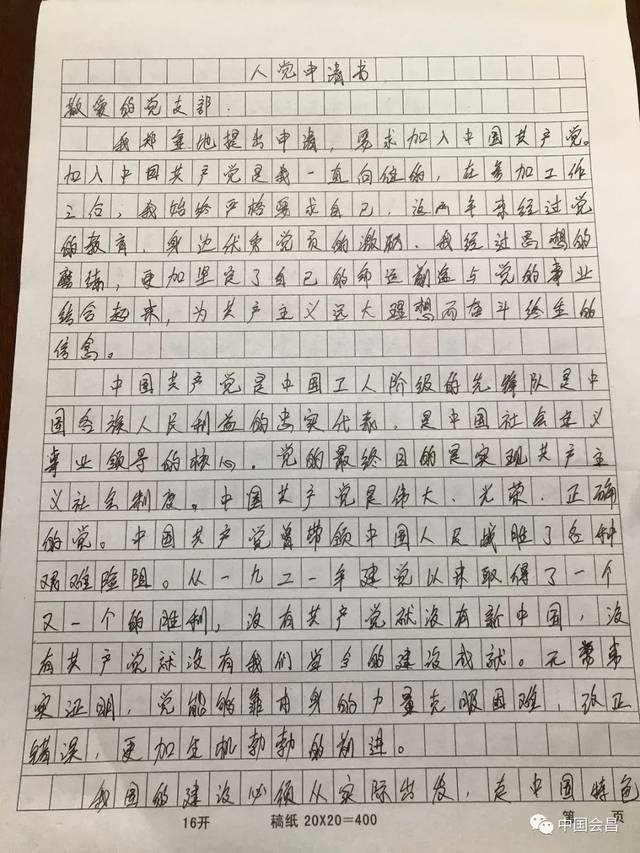 入党申请书
敬爱的党支部.
我郑重地提出申请,要求加入中国共产党。
加入中国共产党是我一直向往的,在参加工作
之后,我始终严格要求自己,这两年来经过党
的教育、身边优秀党员的激励、我经过思想的
磨练,更加坚定了自己的命运前途与党的事业
结合起来,为共产主义远大理想而奋斗终生的
信念。
中国共产党是中国工人阶级的先锋队是中
国各族人民利益的忠实代表,是中国社会主义
事业领导的核心。党的最终目的是实现共产主
义社会制度。中国共产党是伟大、光荣、正确
的党。中国共产党曾带领中国人民战胜了各种
艰难险阻。从一九二一年建党以来取得了一个
又一个的胜利,没有共产党就没有新中国,没
有共产党就没有我们当今的建设成就。无常事
实证明,党能够靠自身的力量克服困难,改正
错误,更加生机勃勃的前进。
我国的建设必须从实际出发,走中国特色
16开
稿纸 20X20=400
第 页
中国会昌